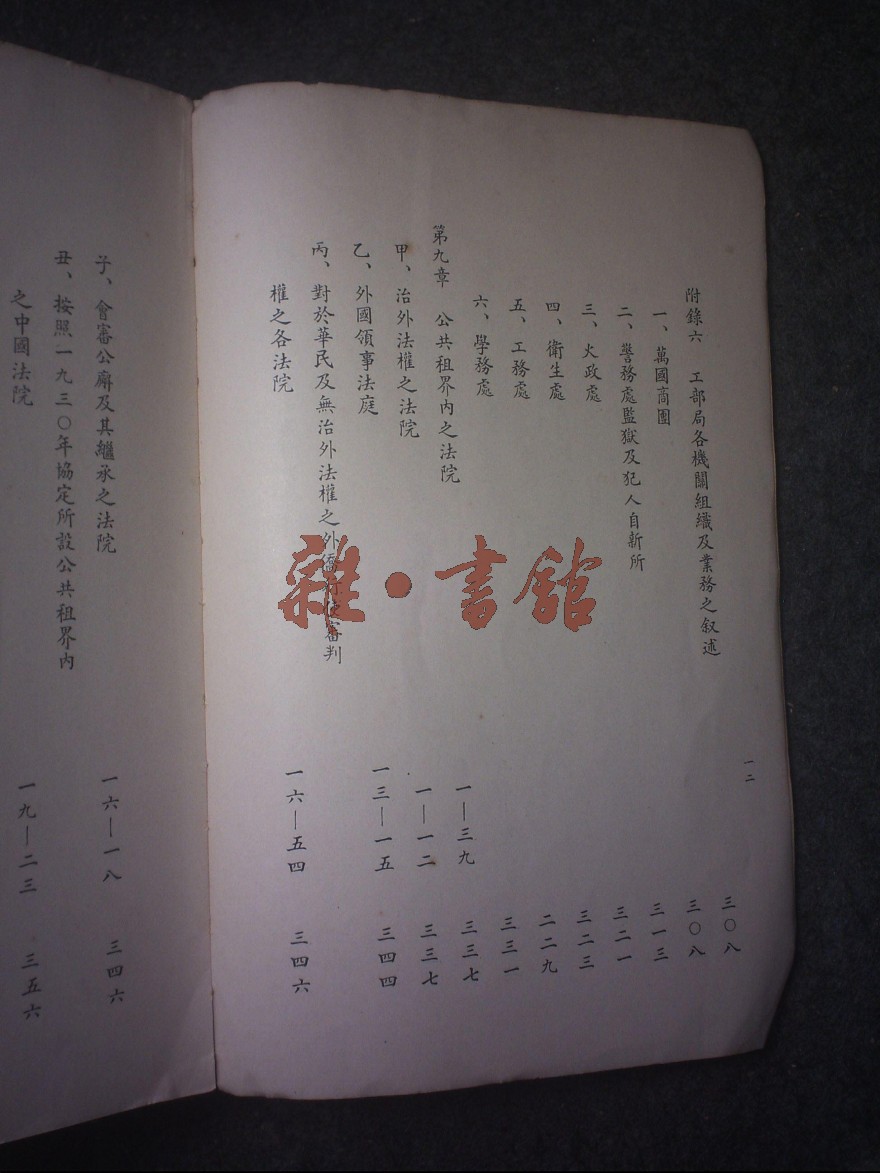 一二
附錄六　工部局各機關組織及業務之叙述　三〇八
一、萬國商團　三〇八
二、警務處監獄及犯人自新所　三一三
三、火政處　三二一
四、衛生處　三二三
五、工務處　二二九
六、學務處　三三一
第九章　公共租界內之法院　一—三九　三三七
甲、治外法權之法院　一—一二　三三七
乙、外國領事法庭　一三—一五　三四四
丙、對於華民及無治外法權之外僑行使審判
權之各法院　一六—五四　三四六
子、會審公廨及其繼承之法院　一六—一八　三四六
丑、按照一九三〇年協定所設公共租界內
之中國法院　一九—二三　三五六
雜·書館